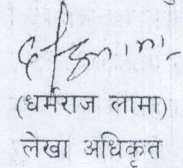 (धर्मराज लामा)
लेखा अधिकृत